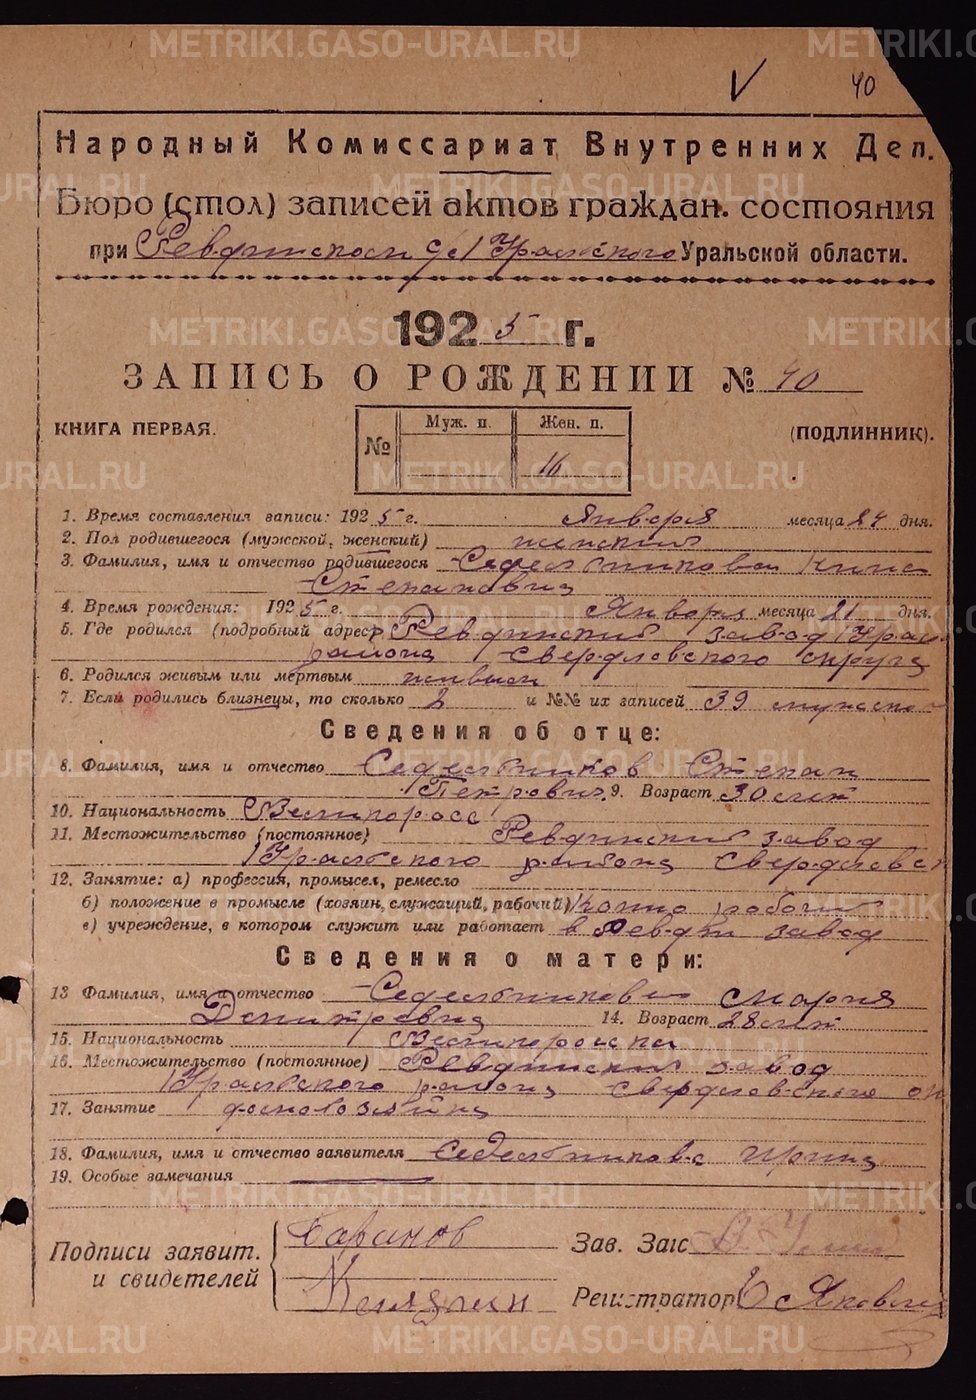 40
Народный Комиссариат Внутренних Дел.
Бюро (стол) записей актов граждан. состояния
при Ревдинском с/с Уральского Уральской области.
1925 г.
ЗАПИСЬ О РОЖДЕНИИ № 40
КНИГА ПЕРВАЯ.
(ПОДЛИННИК).
№ Муж. п. Жен. п.
16
1. Время составления записи: 1925 г. Января месяца 24 дня.
2. Пол родившегося (мужской, женский) женский
3. Фамилия, имя и отчество родившегося Седельникова
Степановна
4. Время рождения: 1925 г. Января месяца 21 дня.
5. Где родился (подробный адрес) Ревдинский завод Урал.
района Свердловского округа
6. Родился живым или мертвым живым
7. Если родились близнецы, то сколько 2 и №№ их записей 39 мужского
Сведения об отце:
8. Фамилия, имя и отчество Седельников Степан
Петрович 9. Возраст 30 лет
10. Национальность Великоросс
11. Местожительство (постоянное) Ревдинский завод
Уральского района Свердловск
12. Занятие: а) профессия, промысел, ремесло
б) положение в промысле (хозяин, служащий, рабочий) рабочий
в) учреждение, в котором служит или работает в Ревдин завод
Сведения о матери:
13 Фамилия, имя и отчество Седельникова Мария
Дмитревна 14. Возраст 28 лет
15. Национальность Великоросска
16. Местожительство (постоянное) Ревдинский завод
Уральского района Свердловского ок
17. Занятие домохозяйка
18. Фамилия, имя и отчество заявителя Седельникова Ирина
19. Особые замечания
Подписи заявит. и свидетелей
Баранов
Зав. Загс
Регистратор
METRIKI.GASO-URAL.RU